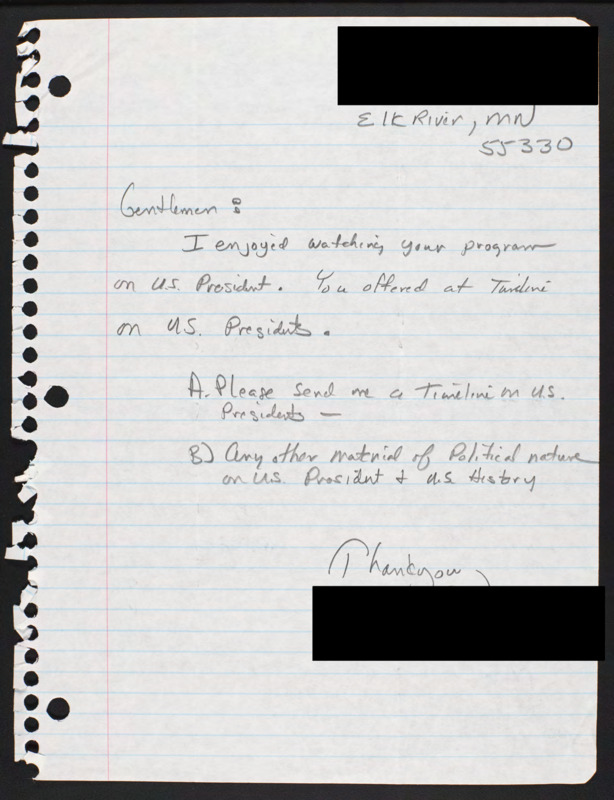 Elk River, MN
55330
Gentlemen :
I enjoyed watching your program
on U.S. President. You offered at Timeline
on U.S. Presidents.
A. Please send me a Timeline on U.S.
Presidents —
B) Any other material of Political nature
on U.S. President & U.S History
Thankyou,